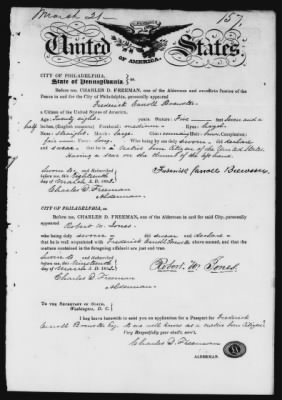 March 21
157.
United States
OF AMERICA.
CITY OF PHILADELPHIA,
State of Pennsylvania, } ss.
Before me, CHARLES D. FREEMAN, one of the Aldermen and ex-officio Justice of the
Peace in and for the City of Philadelphia, personally appeared
Frederick Carroll Brewster
A Citizen of the United States of America.
Age: Twenty eight years. Stature: Five feet Seven and a
half inches, (English measure) Forehead: medium Eyes:
Nose: Straight Mouth: large Chin: Hair: Complexion:
fair Face: long. Who being by me duly sworn
a Citizen of the United States.
Having a scar on the thumb of the left hand
Sworn to and Subscribed
before me, this Eighteenth
day of March A. D. 185
Charles D. Freeman
Alderman.
Frederick Carroll Brewster
CITY OF PHILADELPHIA, ss.
Before me, CHARLES D. FREEMAN, one of the Aldermen in and for said City, personally
appeared Robert W. Jones.
who being duly sworn
that he is well acquainted with Frederick Carroll Brewster above named, and that the matters
contained in the foregoing affidavit are just and true.
Sworn to and Subscribed
before me, this Nineteenth
day of March A. D. 185
Charles D. Freeman
Alderman.
Robert W. Jones.
To the Secretary of State,
Washington, D. C.
I beg leave herewith to send you an application for a Passport for Frederick
Carroll Brewster Esq. to me well known as a native born Citizen
Very Respectfully your obed't serv't.
Charles D. Freeman
ALDERMAN.